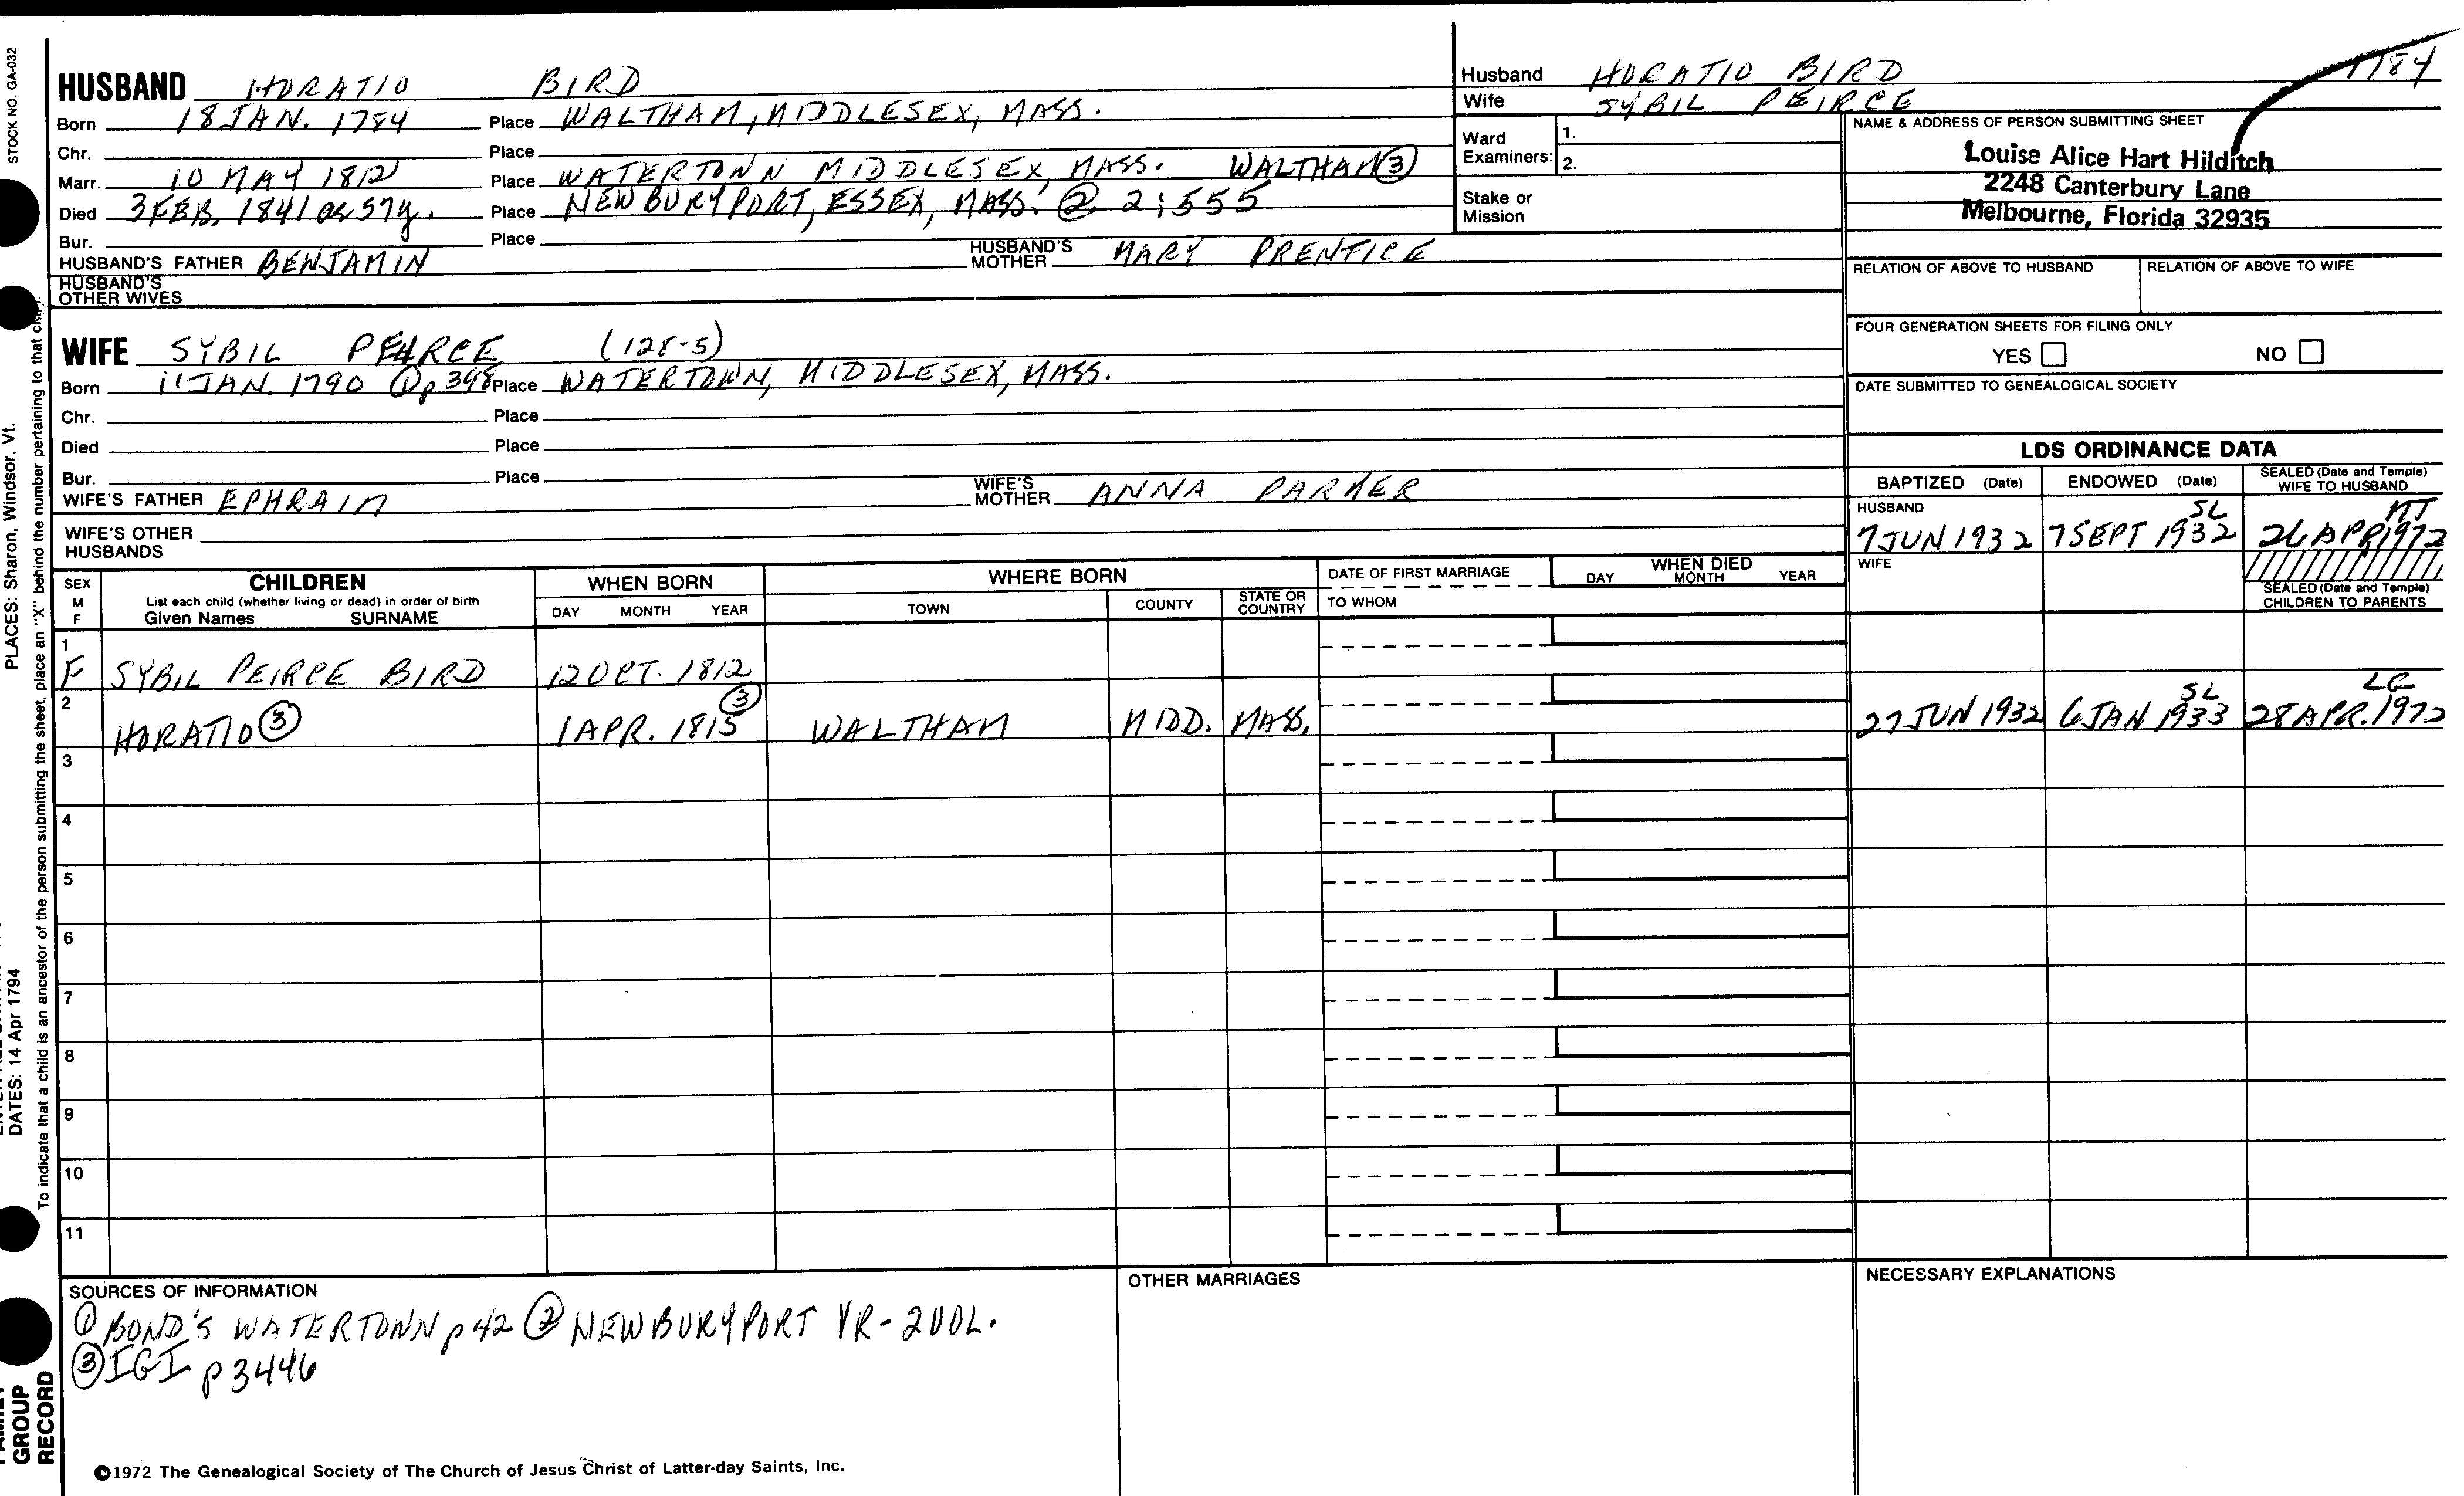 HUSBAND HORATIO BIRD
Born 18 JAN. 1784 Place WALTHAM, MIDDLESEX, MASS.
Chr. Place
Marr. 10 MAY 1812 Place WATERTOWN MIDDLESEX, MASS. WALTHAM ③
Died 3 FEB. 1841 ae 57y. Place NEWBURYPORT, ESSEX, MASS. ② 2:555
Bur. Place
HUSBAND'S FATHER BENJAMIN HUSBAND'S MOTHER MARY PRENTICE
HUSBAND'S OTHER WIVES
Husband HORATIO BIRD 1784
Wife SYBIL PEIRCE
Ward Examiners: 1.
2.
Stake or Mission
NAME & ADDRESS OF PERSON SUBMITTING SHEET
Louise Alice Hart Hilditch
2248 Canterbury Lane
Melbourne, Florida 32935
RELATION OF ABOVE TO HUSBAND RELATION OF ABOVE TO WIFE
FOUR GENERATION SHEETS FOR FILING ONLY
YES NO
DATE SUBMITTED TO GENEALOGICAL SOCIETY
WIFE SYBIL PEIRCE (128-5)
Born 11 JAN. 1790 ① p 398 Place WATERTOWN, MIDDLESEX, MASS.
Chr. Place
Died Place
Bur. Place
WIFE'S FATHER EPHRAIM WIFE'S MOTHER ANNA PARKER
WIFE'S OTHER HUSBANDS
LDS ORDINANCE DATA
BAPTIZED (Date) ENDOWED (Date) SEALED (Date and Temple) WIFE TO HUSBAND
HUSBAND
7 JUN 1932 7 SEPT 1932 SL 26 APR 1972 MT
WIFE
SEALED (Date and Temple) CHILDREN TO PARENTS
SEX M F
CHILDREN
List each child (whether living or dead) in order of birth
Given Names SURNAME
WHEN BORN
DAY MONTH YEAR
WHERE BORN
TOWN COUNTY STATE OR COUNTRY
DATE OF FIRST MARRIAGE
TO WHOM
WHEN DIED
DAY MONTH YEAR
1 F SYBIL PEIRCE BIRD 12 OCT. 1812
2 HORATIO ③ 1 APR. 1815 ③ WALTHAM MIDD. MASS. 27 JUN 1932 6 JAN 1933 SL 28 APR. 1972 LG
3
4
5
6
7
8
9
10
11
SOURCES OF INFORMATION
① BOND'S WATERTOWN p 42 ② NEWBURYPORT VR - 2 VOL.
③ IGI p 3446
OTHER MARRIAGES
NECESSARY EXPLANATIONS
©1972 The Genealogical Society of The Church of Jesus Christ of Latter-day Saints, Inc.
STOCK NO. GA-032
PLACES: Sharon, Windsor, Vt.
DATES: 14 Apr 1794
To indicate that a child is an ancestor of the person submitting the sheet, place an "X" behind the number pertaining to that
GROUP
RECORD